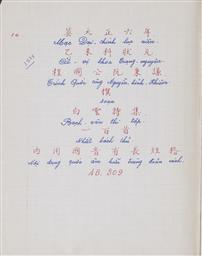 莫大正六年
Mạc Đại-chính lục niên.
乙未科狀元
Ất-vị khoa trạng-nguyên
程國公阮秉謙
Trình Quốc công Nguyễn Bỉnh Khiêm
撰
soạn
白雲詩集
Bạch-vân thi tập.
一百首
Nhất bách thủ
內用國音有長短格
Nội dụng quốc âm hữu trường đoản cách.
AB. 309